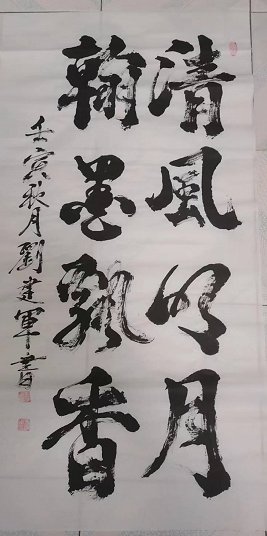 清風明月
翰墨飄香
壬寅秋月劉建軍書